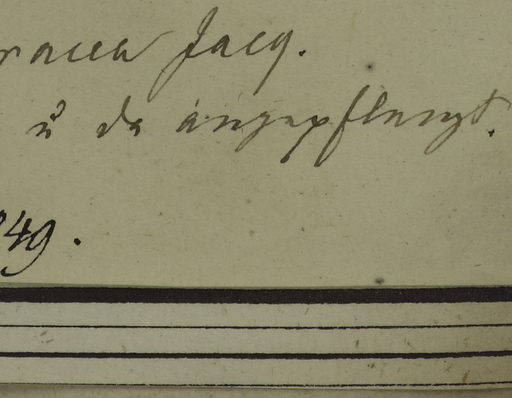 racea Jacq.
u da angepflanzt.
849.